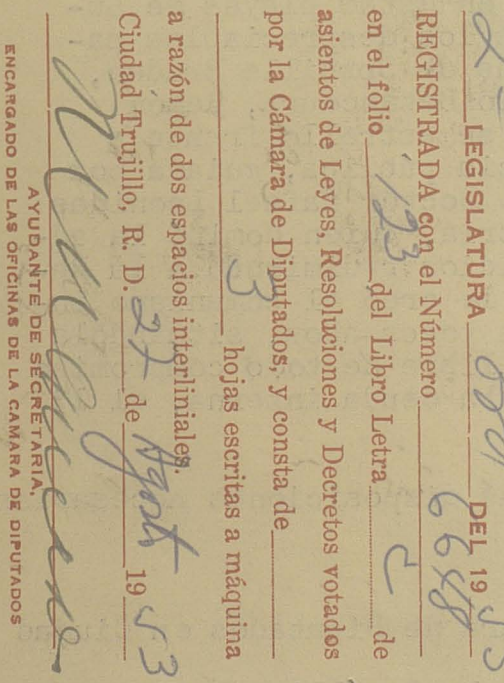 2ª LEGISLATURA Ord. DEL 1953
REGISTRADA con el Número 6648
en el folio 123 del Libro Letra C de
asientos de Leyes, Resoluciones y Decretos votados
por la Cámara de Diputados, y consta de
3 hojas escritas a máquina
a razón de dos espacios interliniales.
Ciudad Trujillo, R. D. 27 de Agosto 1953
AYUDANTE DE SECRETARIA,
ENCARGADO DE LAS OFICINAS DE LA CAMARA DE DIPUTADOS